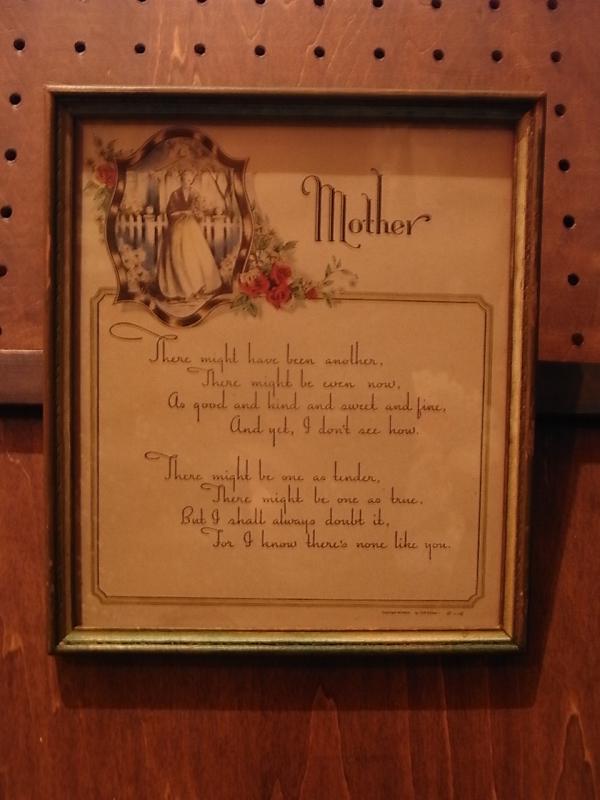 Mother
There might have been another,
There might be even now,
As good and kind and sweet and fine,
And yet, I don't see how.
There might be one as tender,
There might be one as true,
But I shall always doubt it,
For I know there's none like you.